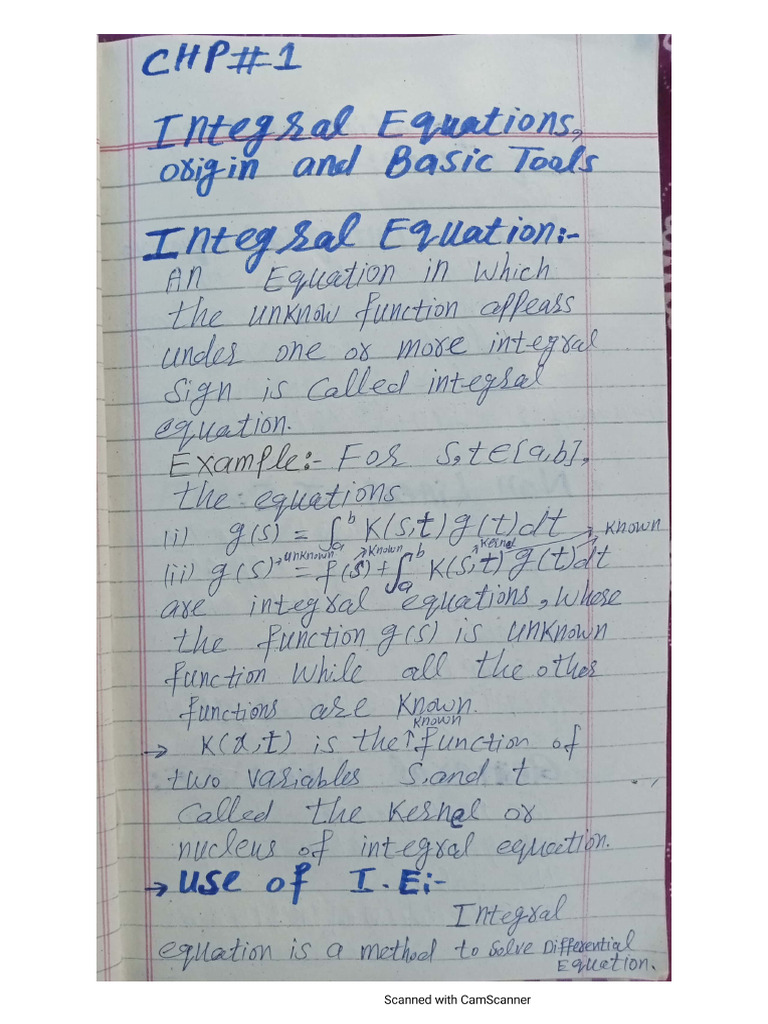 CHP#1
Integral Equations,
origin and Basic Tools
Integral Equation:-
An Equation in which
the unknow function appears
under one or more integral
sign is called integral
equation.
Example:- For s,t∈[a,b],
the equations
(i) g(s) = ∫ₐᵇ K(s,t) g(t)dt
→ Known
unknown Known Kernel
(ii) g(s) = f(s) + ∫ₐᵇ K(s,t) g(t)dt
are integral equations, where
the function g(s) is unknown
function while all the other
functions are known.
known
→ K(s,t) is the ↑ function of
two variables s, and t
called the kernel or
nucleus of integral equation.
→ use of I.E:-
Integral
equation is a method to solve Differential
Equation.
Scanned with CamScanner